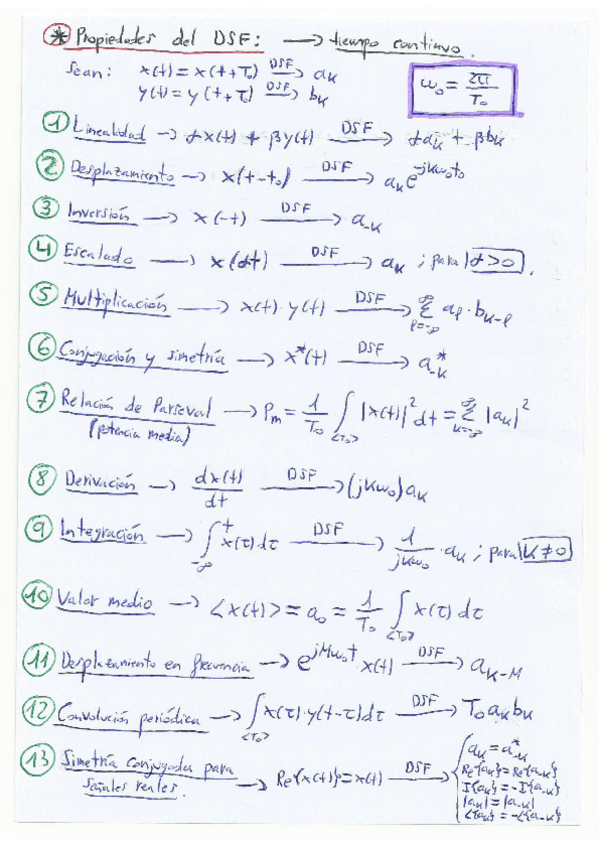 * Propiedades del DSF: → tiempo continuo.
Sean: x(t) = x(t+T₀) DSF→ aₖ
y(t) = y(t+T₀) DSF→ bₖ
ω₀ = 2π/T₀
① Linealidad → αx(t) + βy(t) DSF→ αaₖ + βbₖ
② Desplazamiento → x(t-t₀) DSF→ aₖe^(-jkω₀t₀)
③ Inversión → x(-t) DSF→ a₋ₖ
④ Escalado → x(αt) DSF→ aₖ ; para α>0.
⑤ Multiplicación → x(t)·y(t) DSF→ ∑_(ℓ=-∞)^∞ aℓ·b_(k-ℓ)
⑥ Conjugación y simetría → x*(t) DSF→ a*₋ₖ
⑦ Relación de Parseval → Pm = 1/T₀ ∫_<T₀> |x(t)|² dt = ∑_(k=-∞)^∞ |aₖ|²
(potencia media)
⑧ Derivación → dx(t)/dt DSF→ (jkω₀)aₖ
⑨ Integración → ∫_(-∞)^t x(τ)dτ DSF→ 1/(jkω₀)·aₖ ; para k≠0
⑩ Valor medio → <x(t)> = a₀ = 1/T₀ ∫_<T₀> x(τ)dτ
⑪ Desplazamiento en frecuencia → e^(jMω₀t) x(t) DSF→ a_(k-M)
⑫ Convolución periódica → ∫_<T₀> x(τ)·y(t-τ)dτ DSF→ T₀aₖbₖ
⑬ Simetría conjugada para
señales reales. → Re{x(t)} = x(t) DSF→
aₖ = a*₋ₖ
Re{aₖ} = Re{a₋ₖ}
I{aₖ} = -I{a₋ₖ}
|aₖ| = |a₋ₖ|
∠{aₖ} = -∠{a₋ₖ}